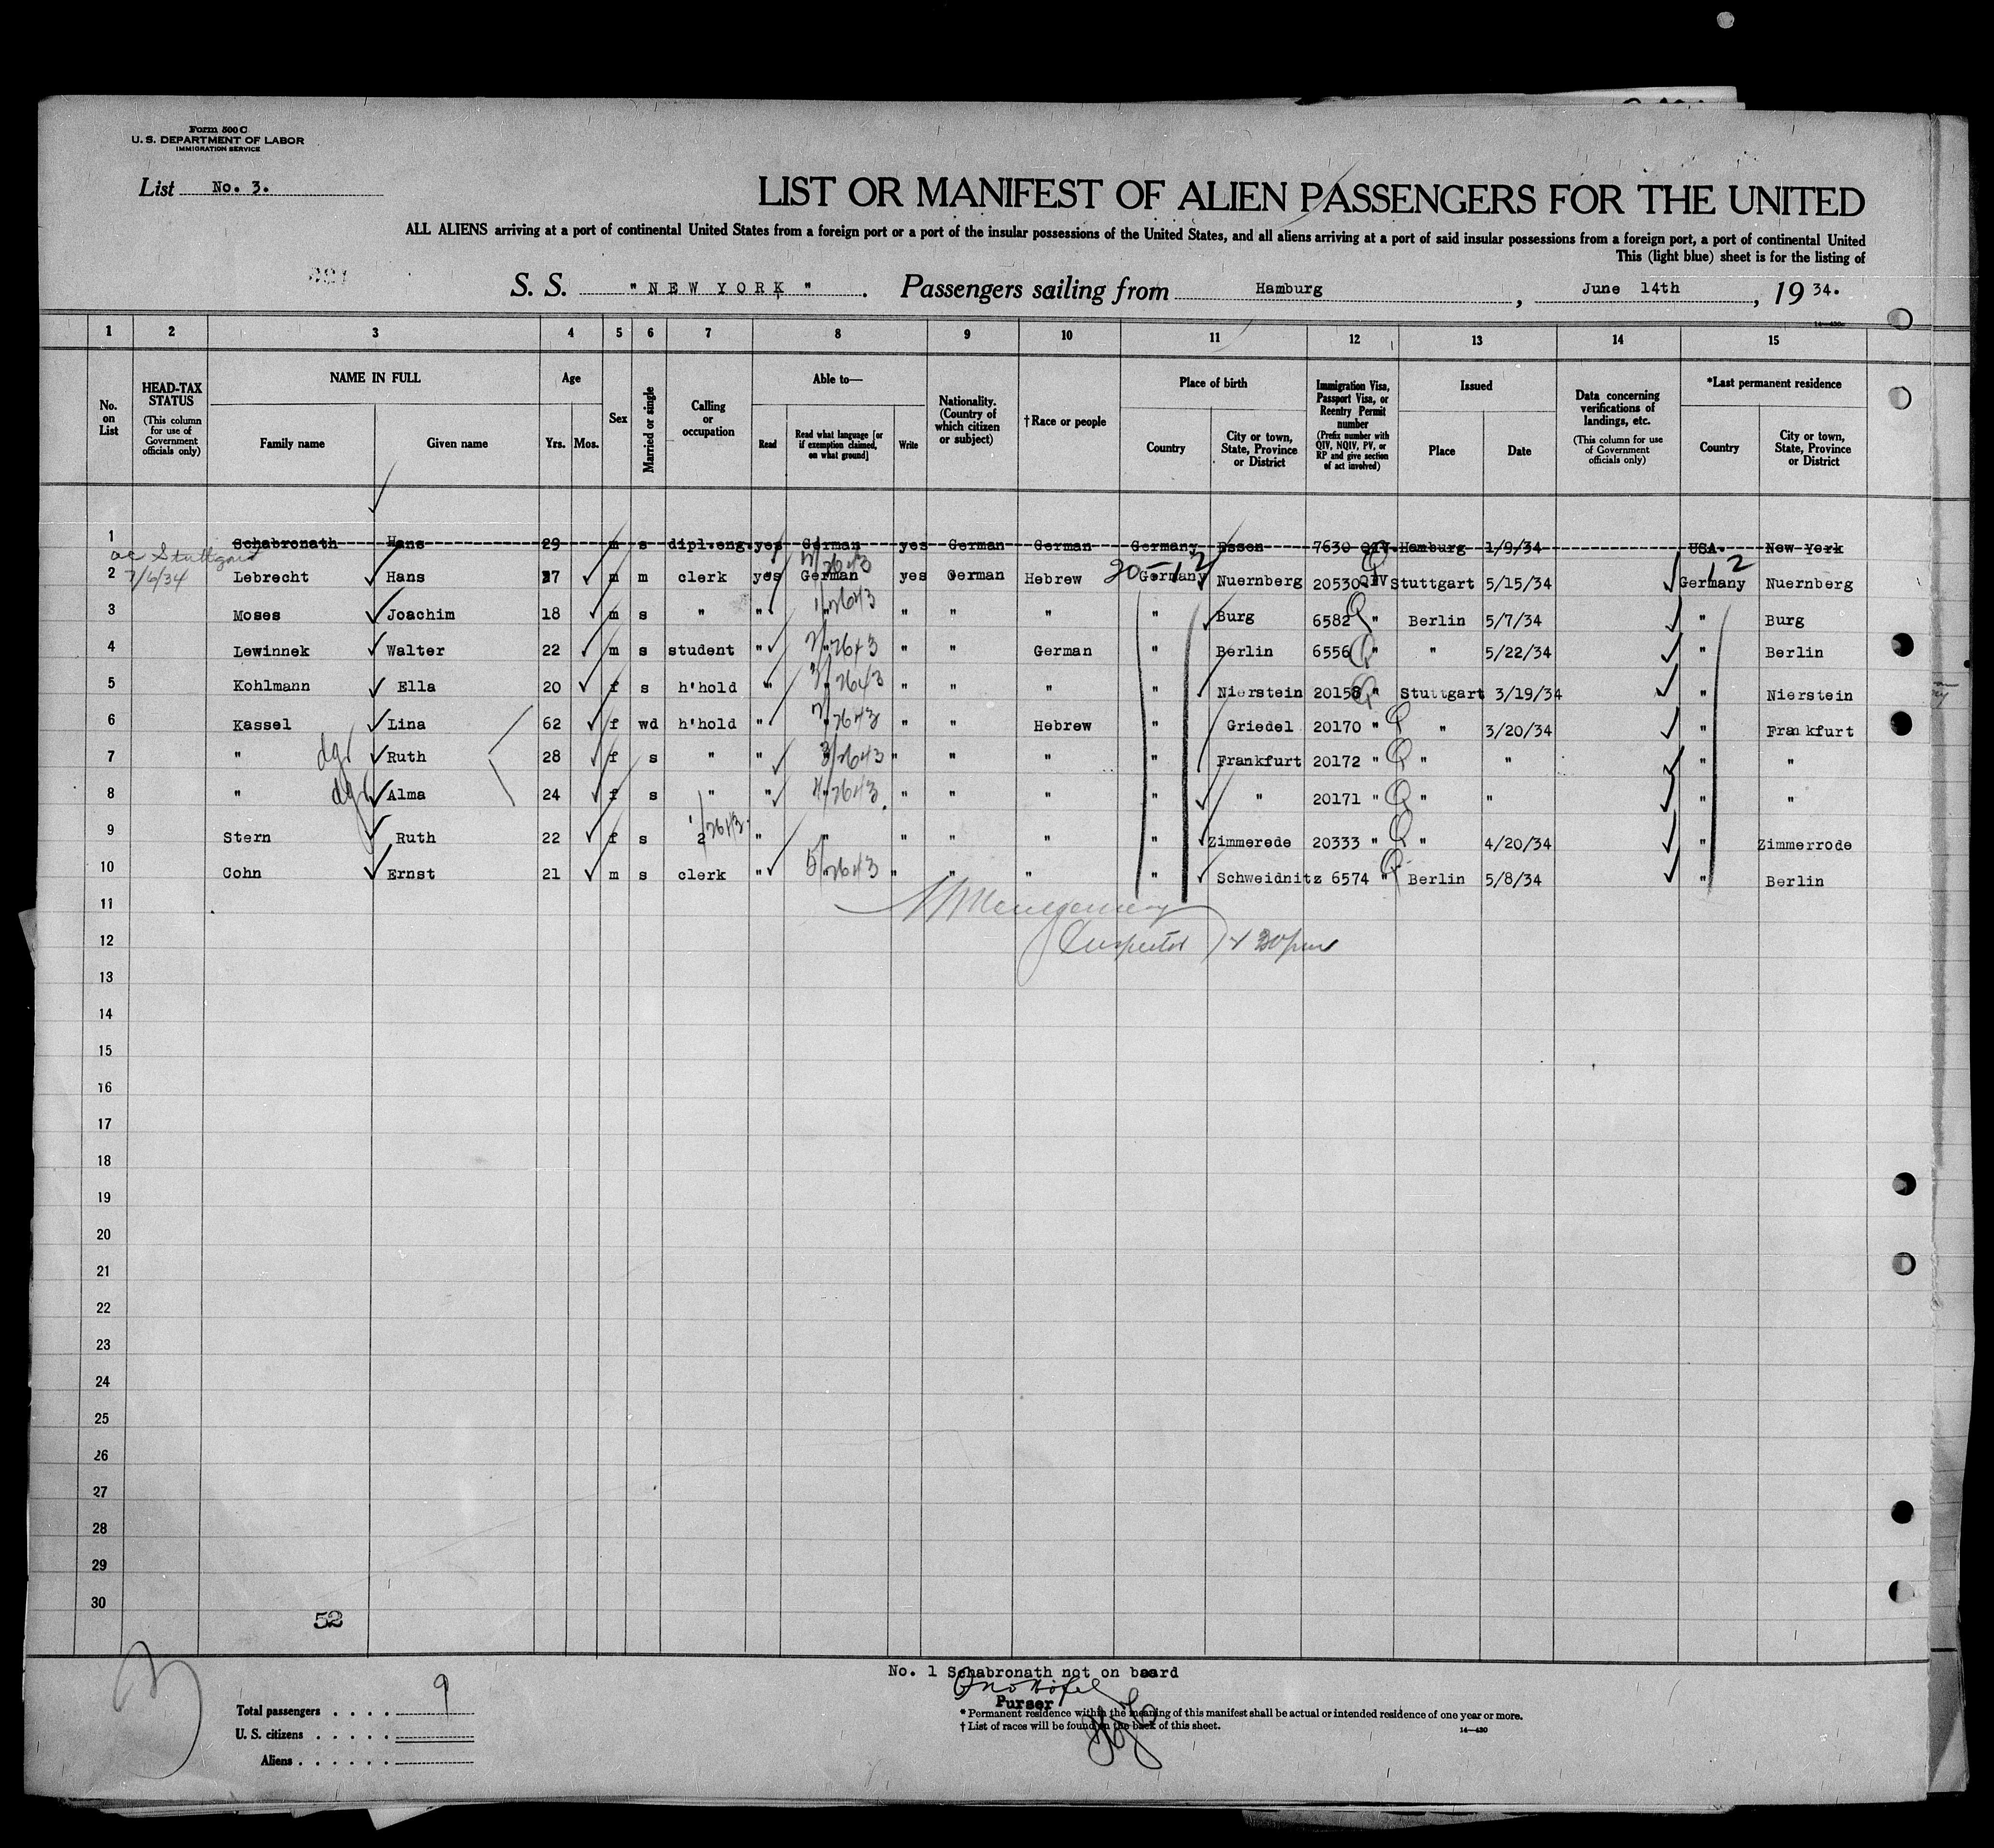 Form 500 C
U. S. DEPARTMENT OF LABOR
IMMIGRATION SERVICE
List No. 3.
LIST OR MANIFEST OF ALIEN PASSENGERS FOR THE UNITED
ALL ALIENS arriving at a port of continental United States from a foreign port or a port of the insular possessions of the United States, and all aliens arriving at a port of said insular possessions from a foreign port, a port of continental United
This (light blue) sheet is for the listing of
S. S. " NEW YORK " . Passengers sailing from Hamburg , June 14th , 19 34.
1 2 3 4 5 6 7 8 9 10 11 12 13 14 15
No. on List
HEAD-TAX STATUS (This column for use of Government officials only)
NAME IN FULL
Family name Given name
Age
Yrs. Mos.
Sex
Married or single
Calling or occupation
Able to—
Read Read what language [or if exemption claimed, on what ground] Write
Nationality. (Country of which citizen or subject)
†Race or people
Place of birth
Country City or town, State, Province or District
Immigration Visa, Passport Visa, or Reentry Permit number (Prefix number with QIV, NQIV, PV, or RP and give section of act involved)
Issued
Place Date
Data concerning verifications of landings, etc. (This column for use of Government officials only)
*Last permanent residence
Country City or town, State, Province or District
1 Schabronath Hans 29 m s dipl.eng. yes German yes German German Germany Essen 7630 QIV Hamburg 1/9/34 USA. New York
Stuttgart
7/6/34
2 Lebrecht Hans 27 m m clerk yes German yes German Hebrew Germany Nuernberg 20530 QIV Stuttgart 5/15/34 Germany Nuernberg
3 Moses Joachim 18 m s " " " " " " " Burg 6582 " Berlin 5/7/34 " Burg
4 Lewinnek Walter 22 m s student " " " " German " Berlin 6556 " " 5/22/34 " Berlin
5 Kohlmann Ella 20 f s h'hold " " " " " " Nierstein 20158 " Stuttgart 3/19/34 " Nierstein
6 Kassel Lina 62 f wd h'hold " " " " Hebrew " Griedel 20170 " " 3/20/34 " Frankfurt
7 " Ruth 28 f s " " " " " " " Frankfurt 20172 " " " " "
8 " Alma 24 f s " " " " " " " " 20171 " " " " "
9 Stern Ruth 22 f s " " " " " " Zimmerede 20333 " " 4/20/34 " Zimmerrode
10 Cohn Ernst 21 m s clerk " " " " " " Schweidnitz 6574 " Berlin 5/8/34 " Berlin
11
12
Inspector
13
14
15
16
17
18
19
20
21
22
23
24
25
26
27
28
29
30
52
No. 1 Schabronath not on board
Purser
Total passengers . . . . 9
U. S. citizens . . . . .
Aliens . . . . . .
* Permanent residence within the meaning of this manifest shall be actual or intended residence of one year or more.
† List of races will be found on the back of this sheet.
14—430